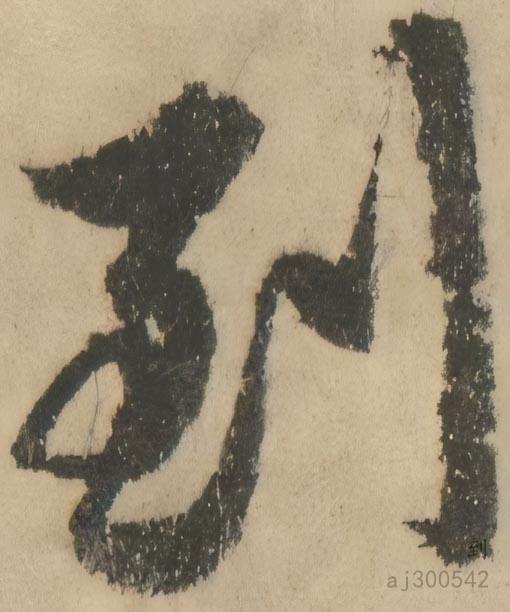 到
到
aj300542